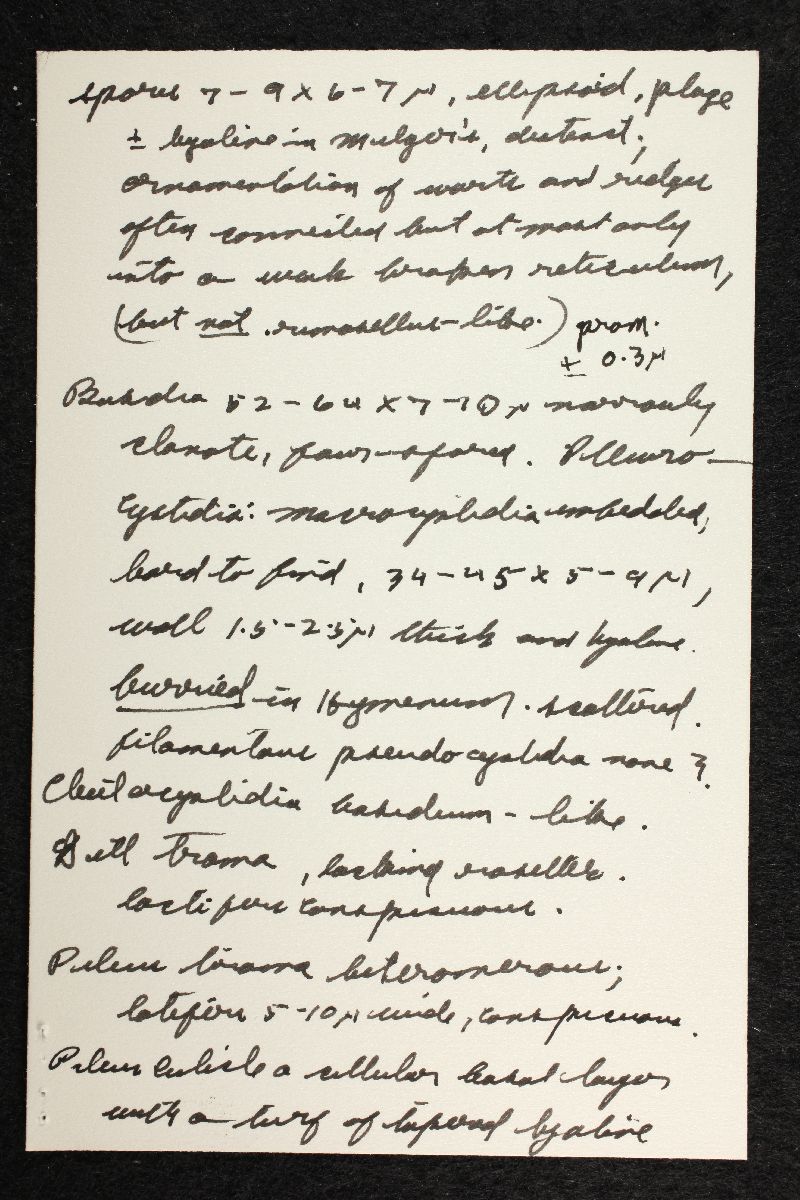 Spores 7-9 x 6-7 µ, ellipsoid, plage
± hyaline in Melzer's, distinct;
ornamentation of warts and ridges
often connected but at most only
into a weak broken reticulum,
(but not rumosellus-like.) prom.
± 0.3 µ
Basidia 52-64 x 7-10 µ narrowly
clavate, four-spored. Pleuro-
cystidia: macrocystidia embedded,
hard to find, 34-45 x 5-9 µ,
wall 1.5-2.5 µ thick and hyaline.
burried in Hymenium. scattered.
filamentous pseudocystidia none?
Cheilocystidia basidium-like.
Gill trama, lacking rosettes.
lactifers conspicuous.
Pileus trama heteromerous;
latifers 5-10 µ wide, conspicuous.
Pileus cuticle a cellular basal layer
with a turf of tapered hyaline